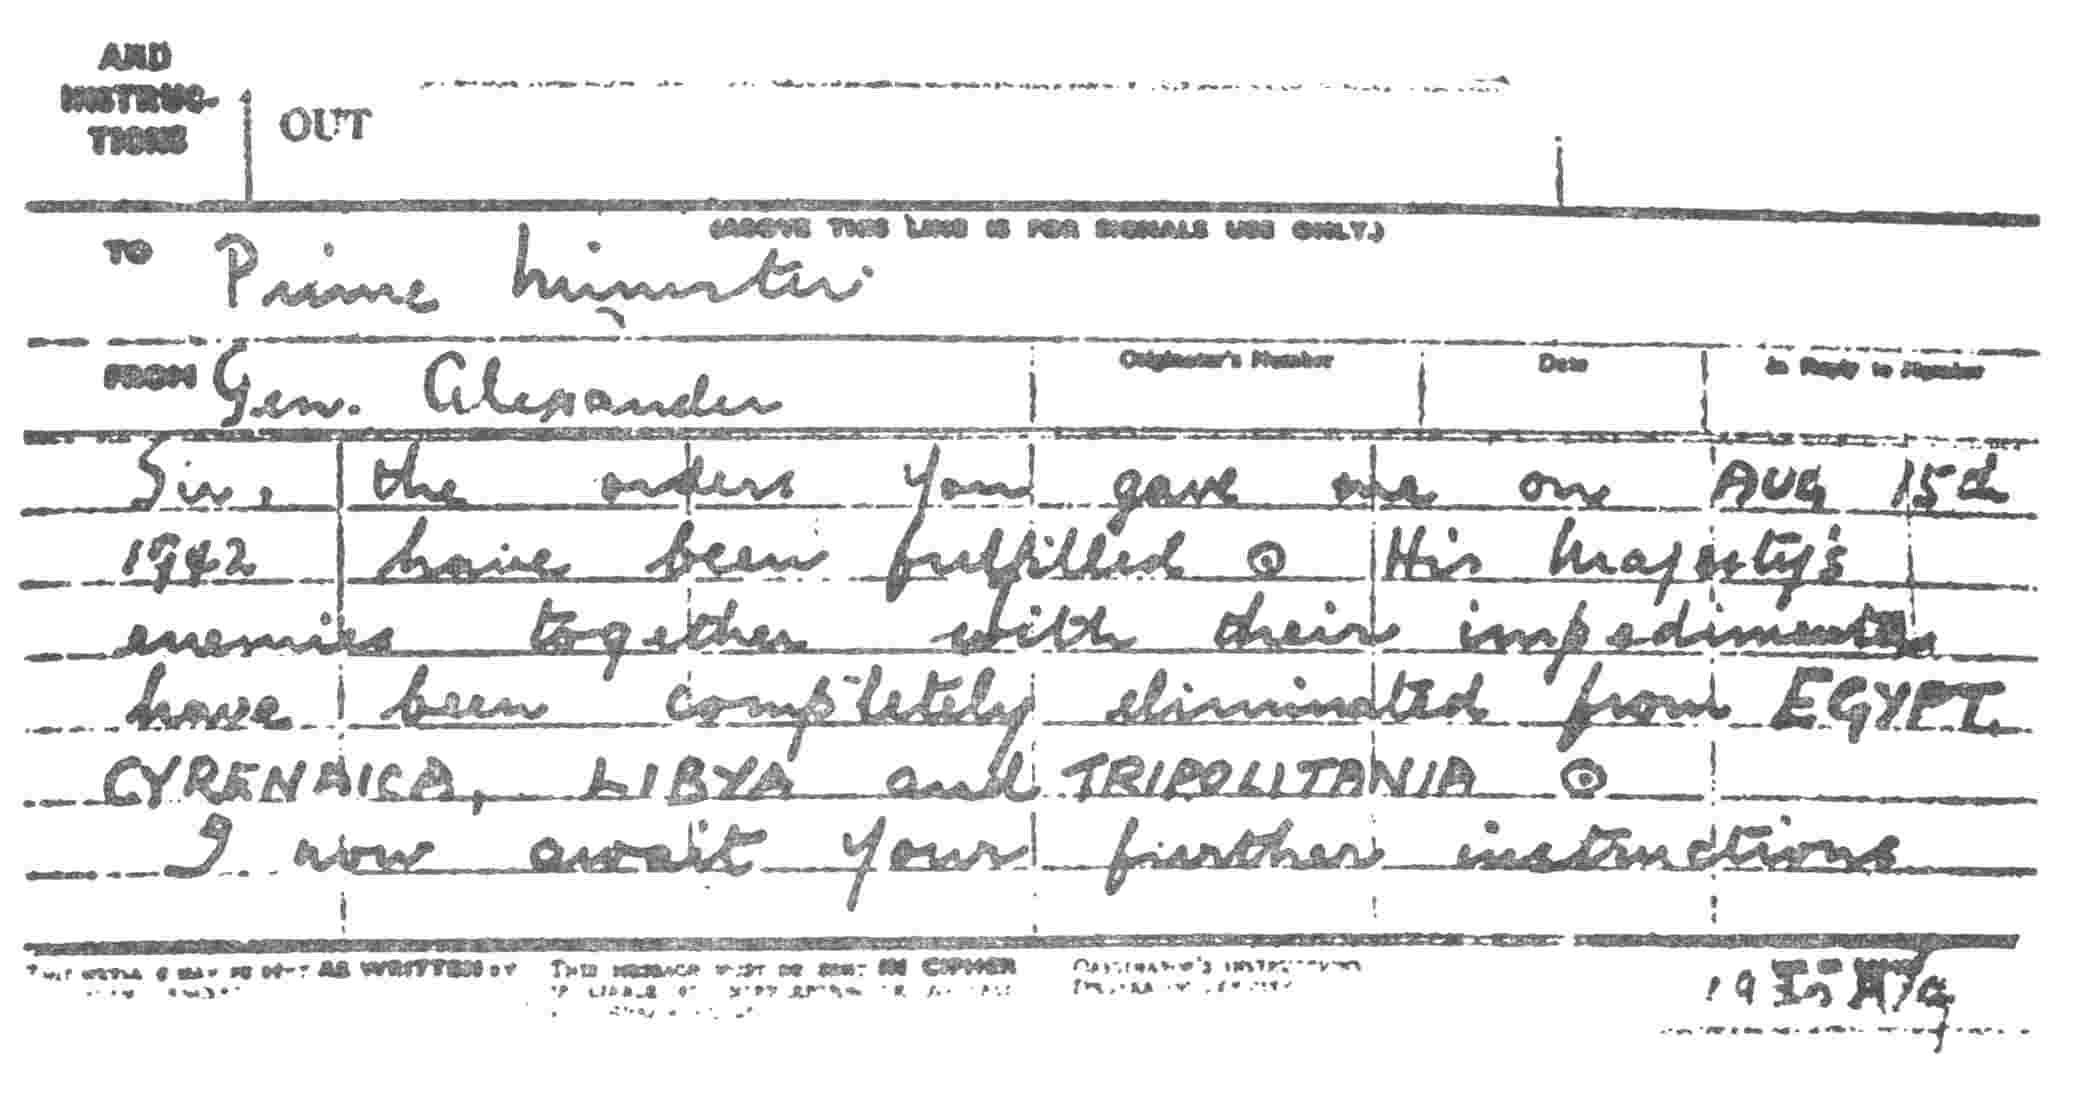 AND
INSTRUC-
TIONS
OUT
(ABOVE THIS LINE IS FOR SIGNALS USE ONLY.)
TO Prime Minister
FROM Gen. Alexander
Originator's Number
Date
In Reply to Number
Sir, the orders you gave me on AUG 15th
1942 have been fulfilled ⊙ His Majesty's
enemies together with their impedimenta
have been completely eliminated from EGYPT,
CYRENAICA, LIBYA and TRIPOLITANIA ⊙
I now await your further instructions
AS WRITTEN
THIS MESSAGE MUST BE SENT IN CIPHER
ORIGINATOR'S INSTRUCTIONS